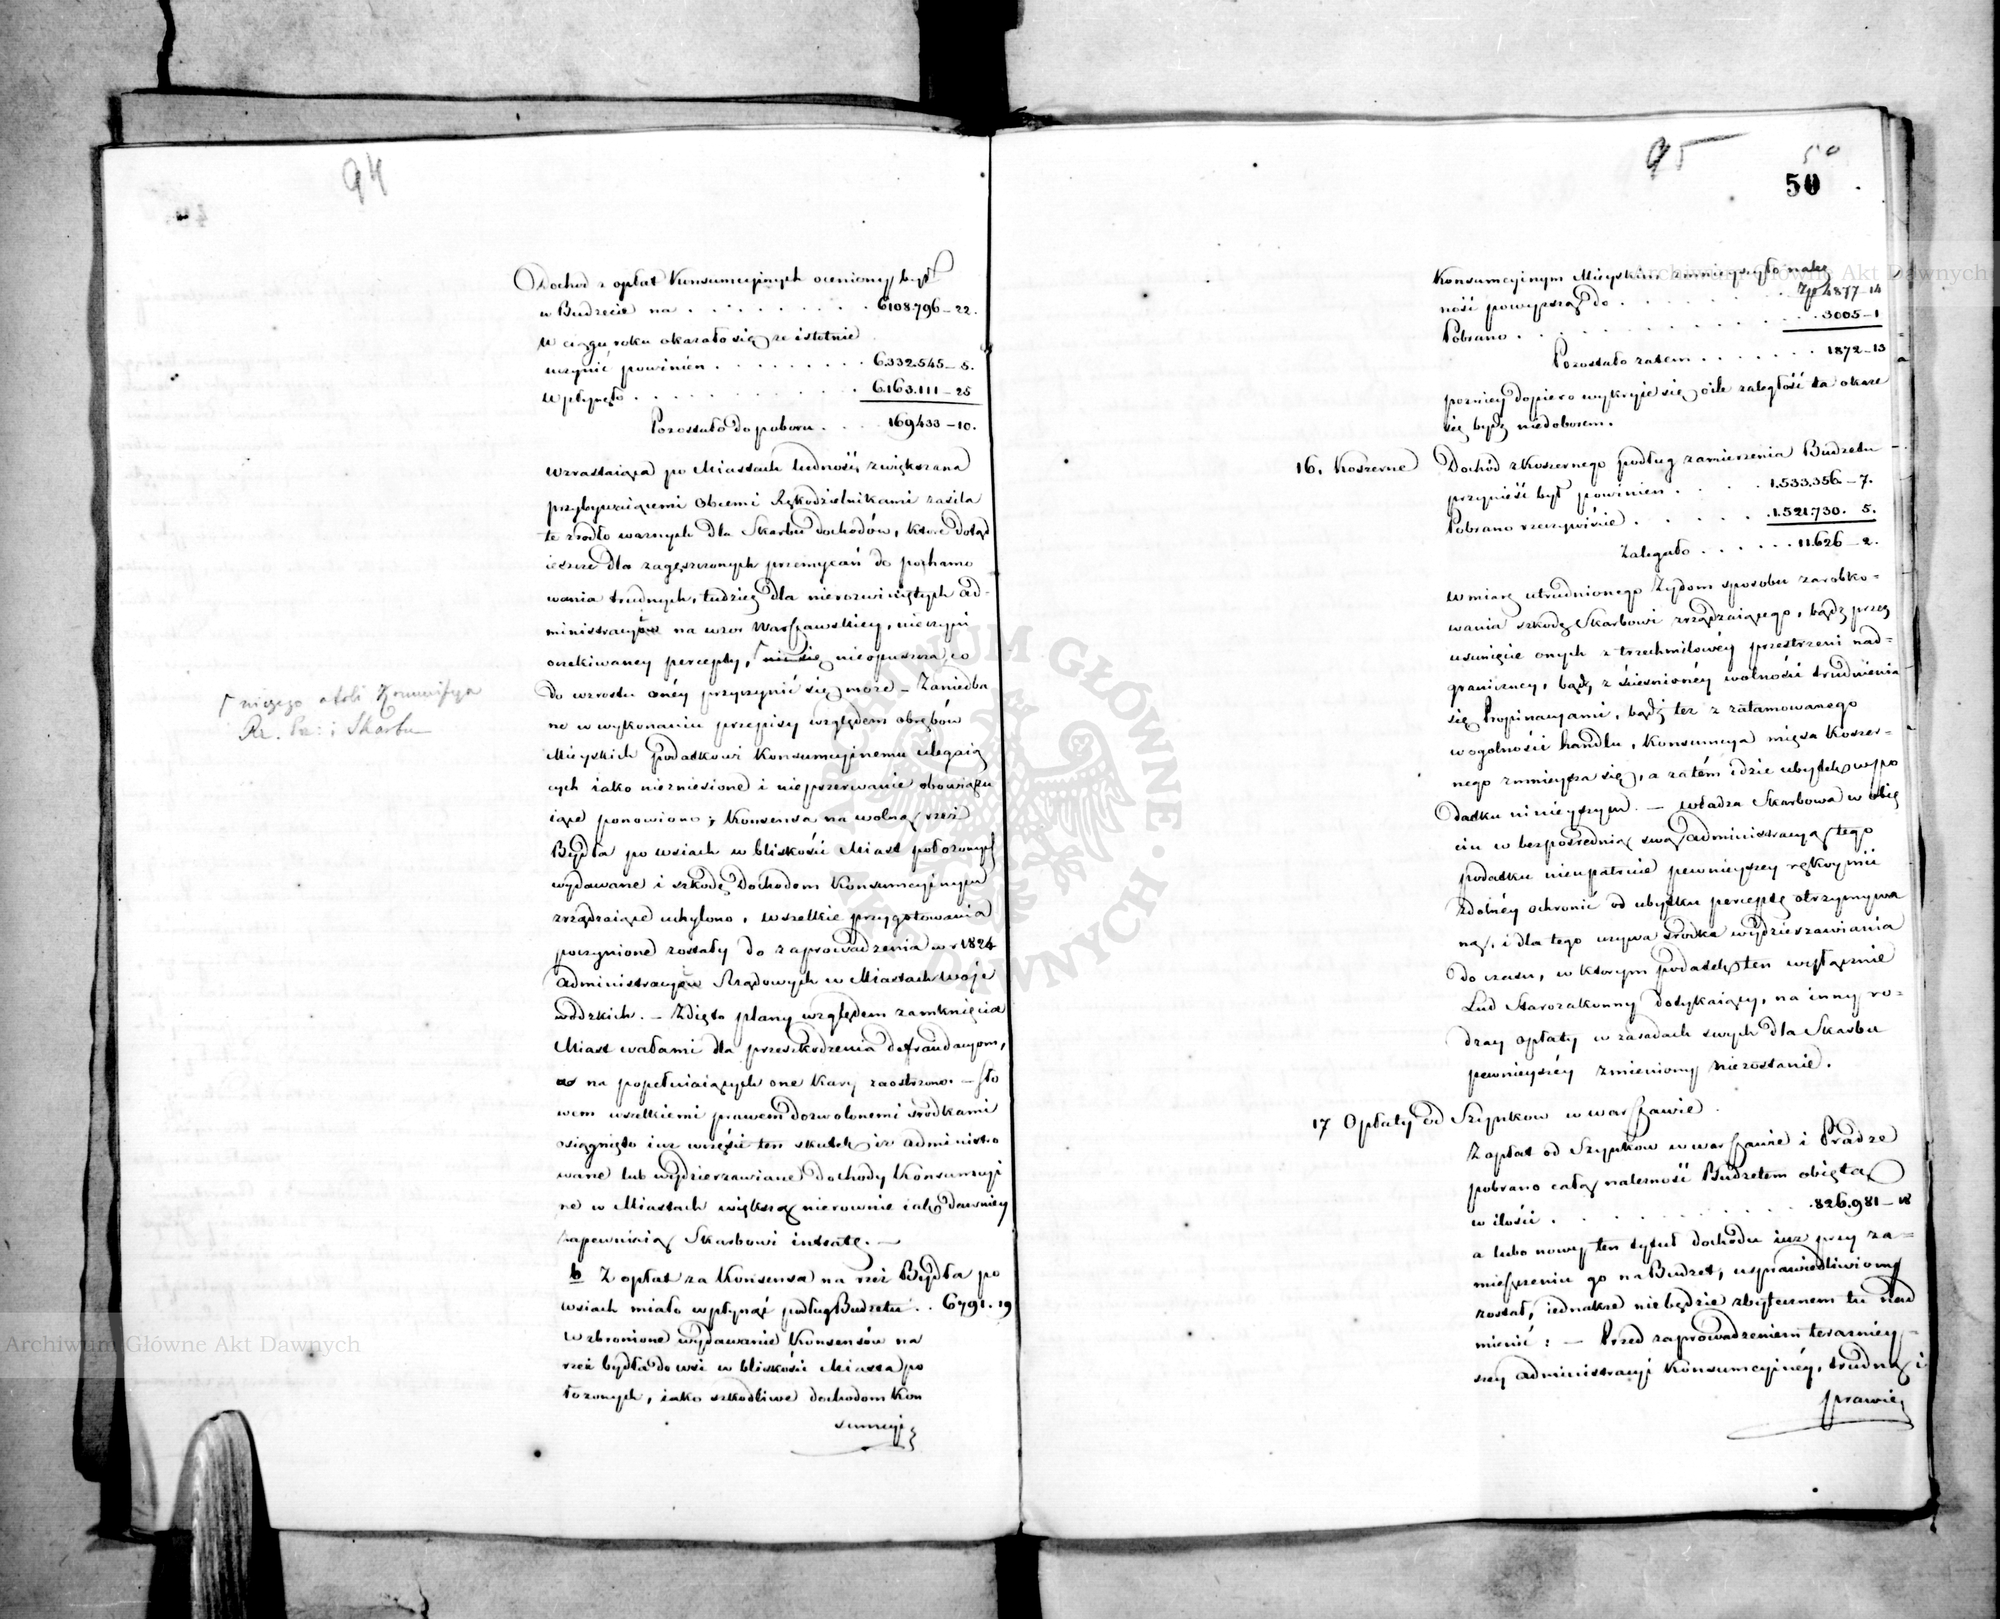 94
Dochod z opłat Konsumcyinych oceniony był
w Budzecie na . . . . . . . . . 6108.796–22.
W ciągu roku okazało się ze istotnie
uczynić powinien . . . . . . . . 6.332.545–5.
Wpłynęło . . . . . . . . . . . 6.163.111–25
Pozostało do poboru . . . . 169433–10.
Wzrastaiąca po Miastach ludność, zwiększana
przybywaiącemi Obcemi Rękodzielnikami zasila
te zrodło waznych dla Skarbu dochodów, ktore dotąd
ieszcze dla zagęszczonych przemycań do pohamo
wania trudnych, tudzież dla nierozwiniętych ad-
ministracyów na wzor Warszawskiey, nieczyni
oczekiwaney percepty, nieopuszcza co
do wzrostu onéy przyczynić się może – Zaniedba
ne w wykonaniu przepisy względem obrębów
Mieyskich podatkowi Konsumcyinemu ulegaią
cych iako niezniesione i nieprzerwanie obowiązu
iące ponowiono; Konsensa na wolną rzeź
Bydła po wsiach w bliskości Miast położonych
wydawane i szkodę Dochodom Konsumcyinym
zrządzaiące uchylono, wszelkie przygotowania
poczynione zostały do zaprowadzenia w r 1824
administracyów Rządowych w Miastach Woje
wódzkich. – Zdięto plany względem zamknięcia
Miast wałami dla przeszkodzenia defraudacyom,
na popełniaiących one kary zaostrzono. – Sło
wem wszelkiemi prawem dozwolonemi środkami
osiągnięto iuz w części ten skutek iz administro
wane lub wydzierzawiane dochody Konsumcyi
ne w Miastach większą nierownie iak dawniey
zapewniaią Skarbowi intratę. –
b Z opłat za Konsensa na rzeź Bydła po
wsiach miało wpłynąć podług Budzetu . . 6791.19
Wzbronione wydawanie Konsensów na
rzeź bydła do wsi w bliskości Miasta po
łozonych, iako szkodliwe dochodom Kon
sumcyi
niczego atoli Kommissya
Rz. Prz: i Skarbu
95
50
50
Konsumcyinym Mieyskim zmnieyszyło nale
ność powyzszą do . . . . . . . Zp 4877–14
Pobrano . . . . . . . . . . . . . 3005–1
Pozostało zatem . . . . . . . 1872–13
pozniey dopiero wykryie się o ile zaległość ta okaze
się bydź niedoborem.
16. Koszerne Dochód z Koszernego podług zamierzenia Budzetu
przynieść był powinien . . . . 1.533.356–7.
Pobrano rzeczywiście . . . . . . 1.521.730. 5.
Zaległo . . . . . . 11.626–2.
W miarę utrudnionego Żydom sposobu zarobko-
wania szkodę Skarbowi zrządzaiącego, bądź przez
usunięcie onych z trzechmilowéy przestrzeni nad-
graniczney, bądź z ścieśnionéy wolności trudnienia
się Propinacyami, bądź tez z zatamowanego
w ogolności handlu, Konsumcya mięsa Koszer-
nego zmnieysza się, a zatém idzie ubytek w po
datku ninieyszym. – Władza Skarbowa w obię
ciu w bezpośrednią swą administracyą tego
podatku nieupatruie pewnieyszey rękoymii
zdolnéy ochronić od ubytku perceptę otrzymywa
ną, i dla tego uzywa srodka wydzierzawiania
do czasu, w ktorym podatek ten wyłącznie
Lud Starozakonny dotykaiący, na inny ro-
dzay opłaty w zasadach swych dla Skarbu
pewnieyszéy zmieniony niezostanie.
17 Opłaty od Szynkow w Warszawie.
Z opłat od Szynkow w Warszawie i Pradze
pobrano całą nalezność Budzetem obiętą
w ilości . . . . . . . . . . . . 826.981–18
a lubo nowy ten tytuł dochodu iuz przy za-
mieszczeniu go na Budzet, usprawiedliwiony
został, iednakze niebędzie zbytecznem tu nad
mienić: – Przed zaprowadzeniem terazniey-
szey administracyi Konsumcyinéy, trudną i
prawie